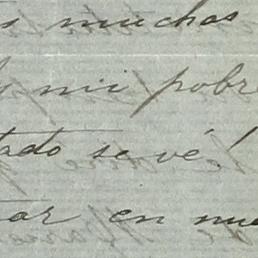 s muchas
mi pobre
tado se vé!
ar en nue